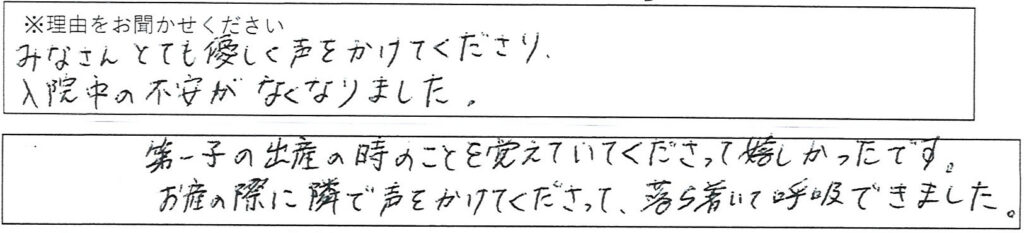 ※理由をお聞かせください
みなさんとても優しく声をかけてくださり、
入院中の不安がなくなりました。
第一子の出産の時のことを覚えていてくださって嬉しかったです。
お産の際に隣で声をかけてくださって、落ち着いて呼吸できました。